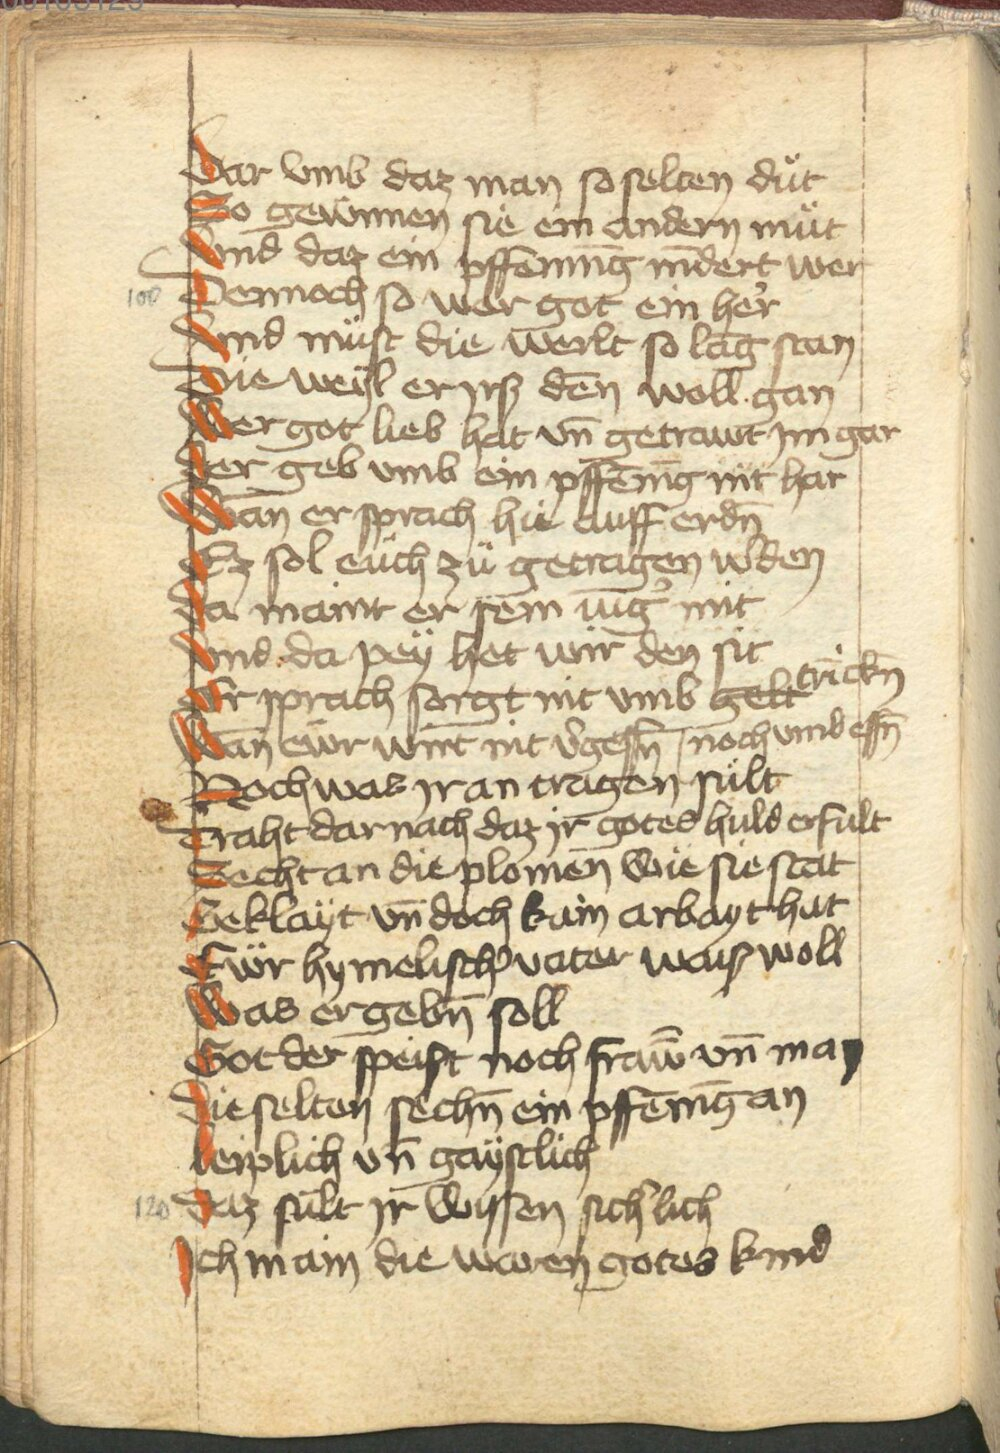 Dar vmb daz man so selten düt
So gewinnen sie ein andern müt
Vnd daz ein pffēning nīdert wer
100 Dennoch so wer got ein her
Vnd müst die werlt so lāg stan
Die weÿl er irß dēn woll gan
Wer got lieb hat vn̄ getrawt im gar
Der geb vmb ein pffēnīg nit har
Wan er sprach hie auff erdn̄
Ez sol eüch zü getragen wˀden
Da maint er sein iūgˀ mit
Vnd da peÿ het wir den sit
Er sprach sorgt nit vmb gelt trīckn̄
Wan ewr wirt nit vˀgessn̄ noch vmb essn̄
Noch was ir an tragen sült
Traht dar nach daz ir gotes huld erfult
Secht an die plomen wie sie stat
Geklaÿt vn̄ doch kain arbayt hat
Ewr hymelischˀ vater waiß woll
Was er gebn̄ soll
Got der speist noch fraw̄ vn̄ man
Die selten sechn̄ ein pffēnīg an
Leiplich vn̄ gaÿstlich
120 Daz sült ir wissen sichˀlich
Ich main die waren gotes kind